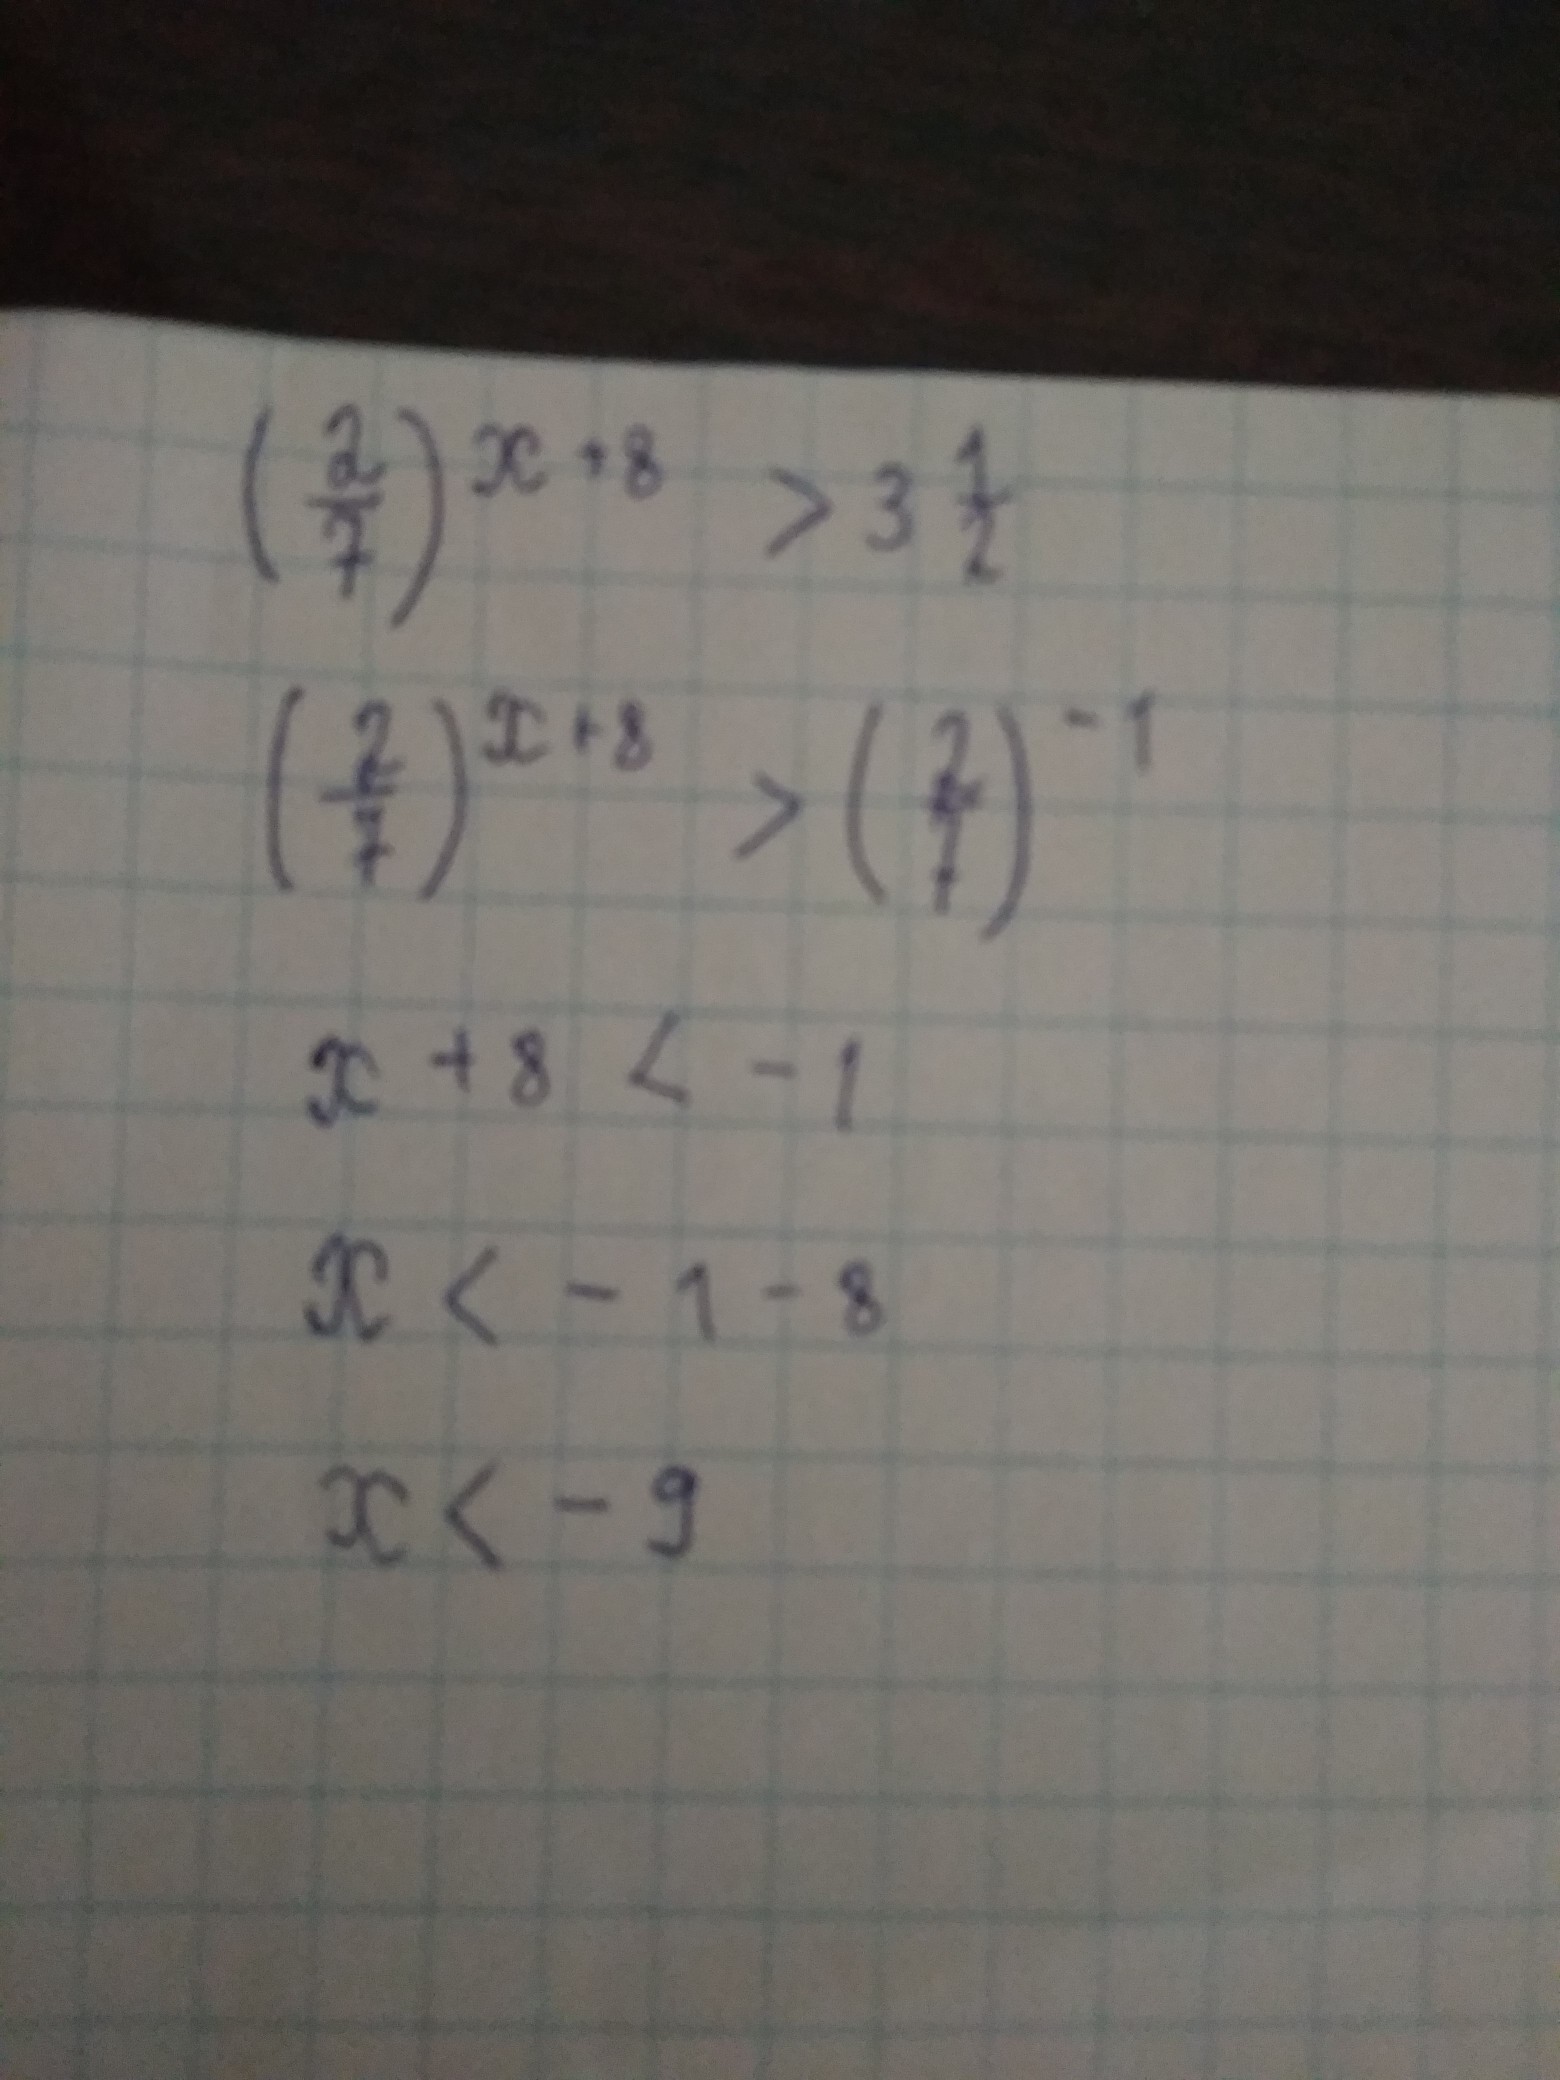 (2/7)^(x+8) > 3 1/2
(2/7)^(x+8) > (2/7)^(-1)
x + 8 < - 1
x < - 1 - 8
x < - 9